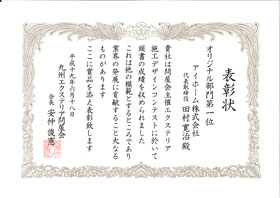 表彰状
オリジナル部門第一位
アイホーム株式会社
代表取締役 田村寛治殿
貴社は問屋会主催エクステリア
施工デザインコンテストに於いて
頭書の成績を収められました
これは他の模範とするところであり
業界の発展に貢献すること大なる
ものがあります
ここに賞品を添え表彰致します
平成十九年六月十八日
九州エクステリア問屋会
会長 安仲俊憲